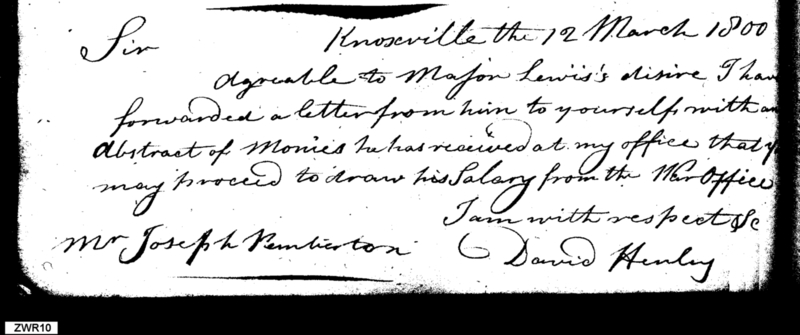 Sir Knoxville the 12 March 1800
Agreable to Major Lewis's disire I have
forwarded a letter from him to yourself with an
Abstract of Monies he has received at my office that y
may proceed to draw his Salary from the War Office
I am with respect &c
Mr Joseph Pemberton David Henley
ZWR10